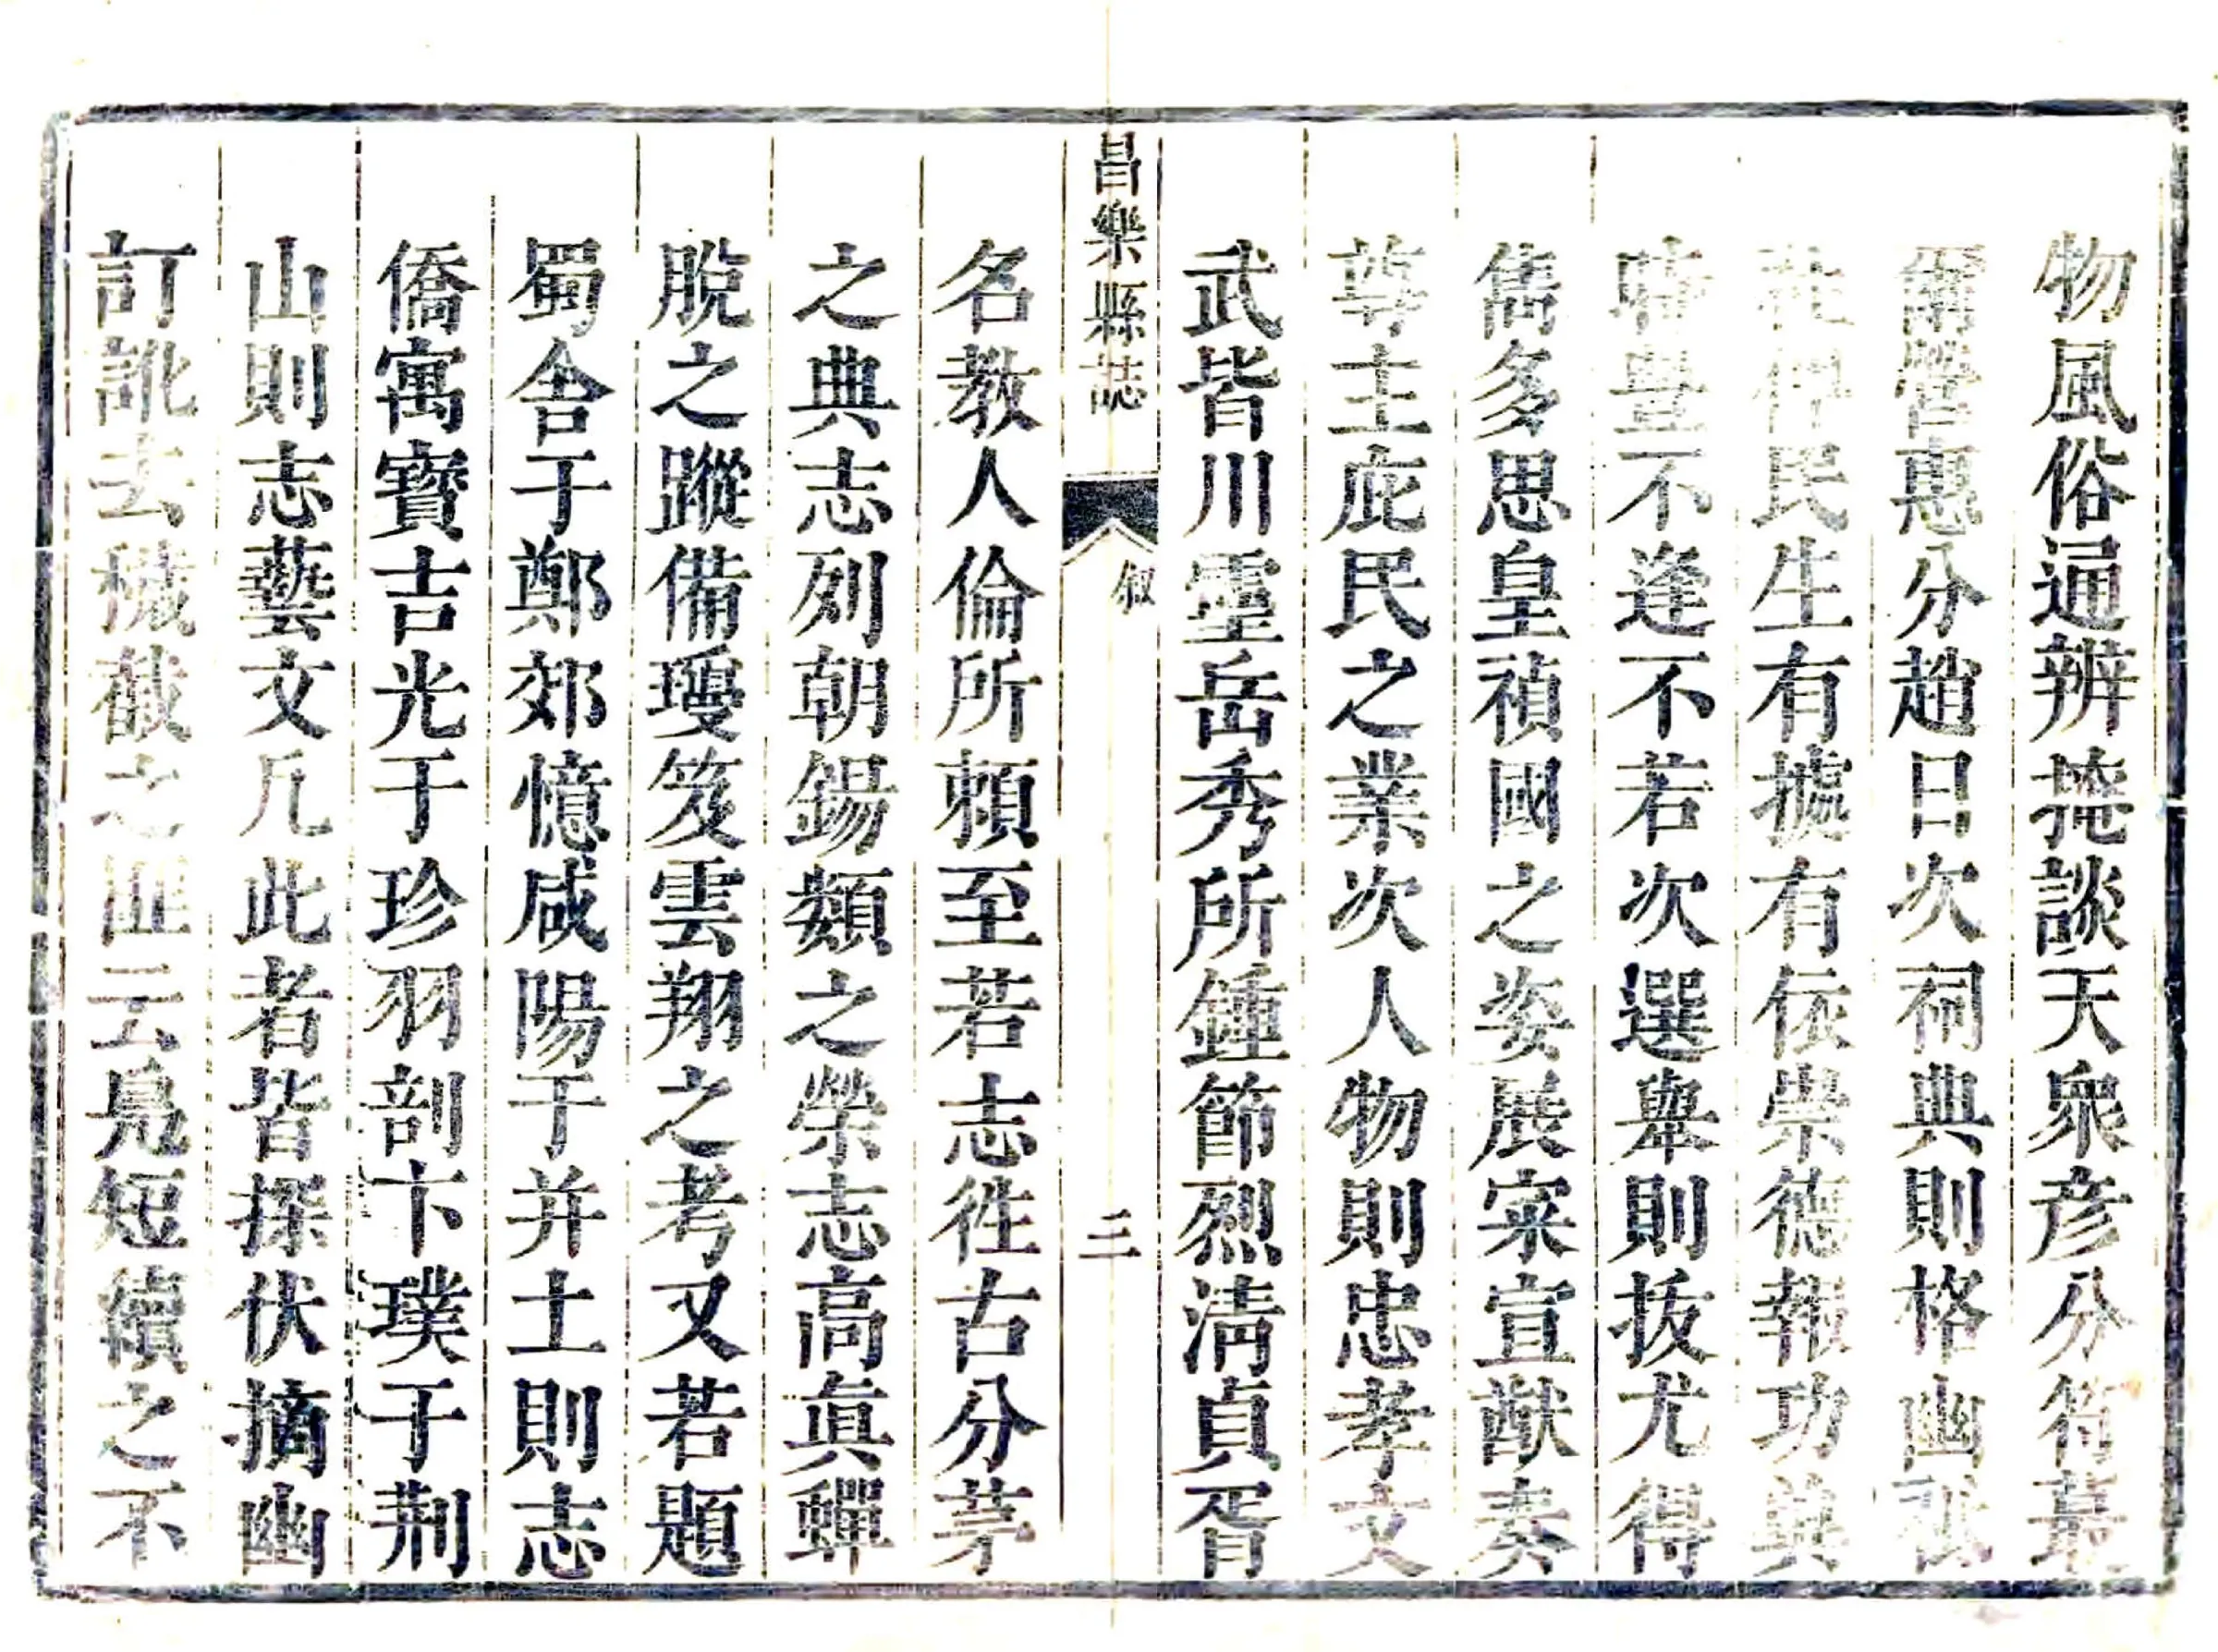 物風俗通辨捲談天衆彦分符蕞
爾營惠分趙日次祠典則格幽祇
社俾民生有據有依崇德報功與
疇豊不逢不若次選舉則拔尤得
雋多思皇禎國之姿展寀宣猷奏
尊主庇民之業次人物則忠孝文
武皆川靈岳秀所鍾節烈淸貞胥
昌樂縣誌
叙
三
名教人倫所賴至若志徃古分茅
之典志列朝錫類之榮志高眞蟬
脫之蹤備瓊笈雲翔之考又若題
蜀舍于鄭郊憶咸陽于并土則志
僑寓寶吉光于珍羽剖卞璞于荆
山則志藝文凡此者皆探伏摘幽
訂訛去穢截之匪云鳬短續之不